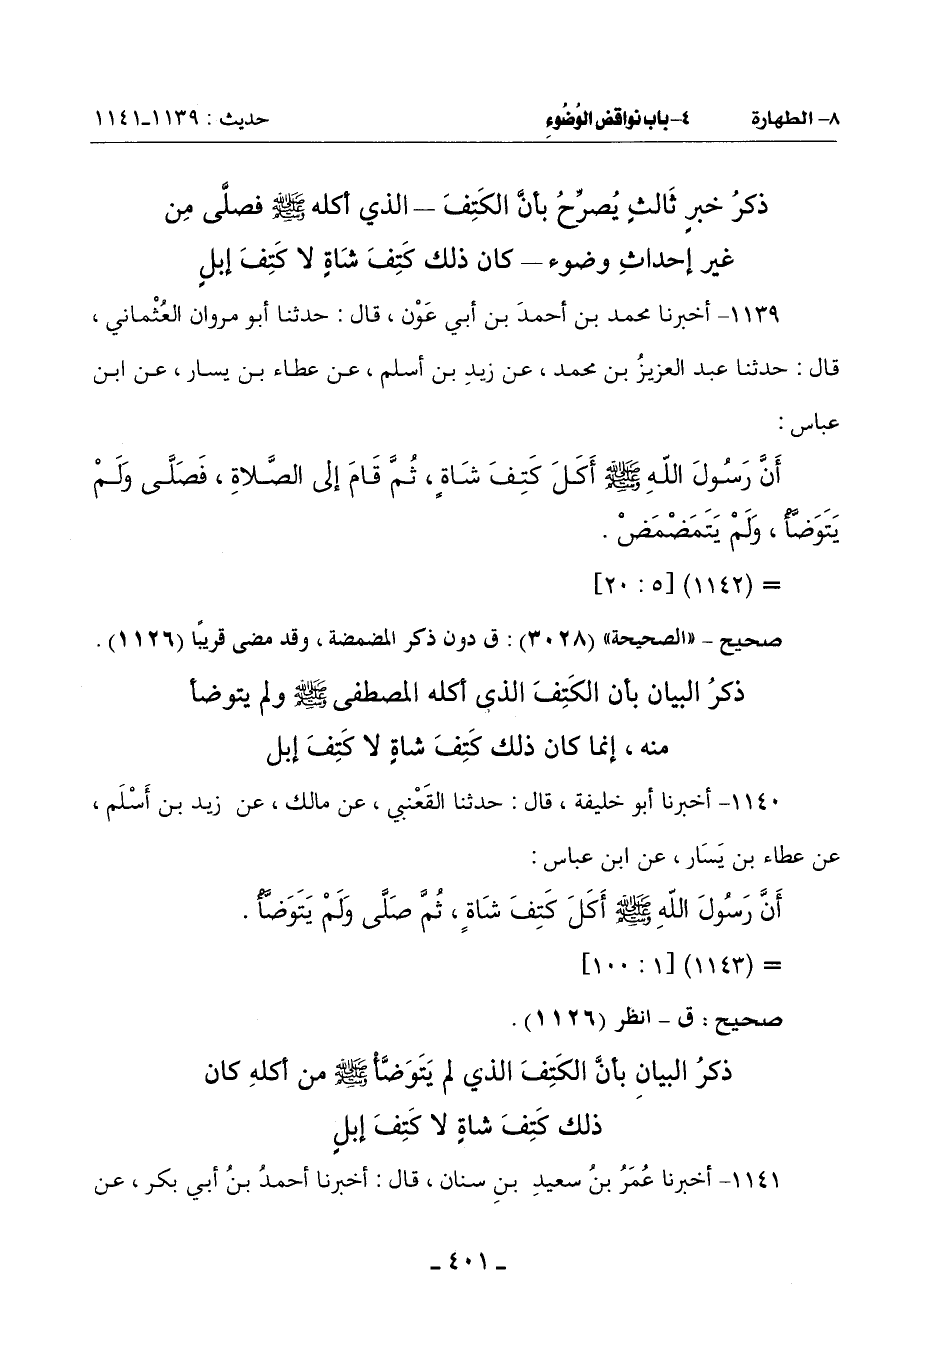 ٨- الطهارة ٤-باب نواقض الوُضُوءِ حديث : ١١٣٩-١١٤١
ذكرُ خبرٍ ثَالثٍ يُصرِّحُ بأنَّ الكَتِفَ – الذي أكله ﷺ فصلَّى مِن
غير إحداثِ وضوء – كان ذلك كَتِفَ شَاةٍ لا كَتِفَ إبلٍ
١١٣٩- أخبرنا محمد بن أحمدَ بن أبي عَوْن ، قال : حدثنا أبو مروان العُثْماني ،
قال : حدثنا عبد العزيزُ بن محمد ، عن زيدِ بن أسلم ، عن عطاء بن يسار ، عن ابن
عباس :
أَنَّ رَسُولَ اللَّهِ ﷺ أَكَلَ كَتِفَ شَاةٍ ، ثُمَّ قَامَ إلى الصَّلاةِ ، فَصَلَّى وَلَمْ
يَتَوَضَّأْ ، وَلَمْ يَتَمَضْمَضْ .
= (١١٤٢) [٥ : ٢٠]
صحيح - «الصحيحة» (٣٠٢٨) : ق دون ذكر المضمضة ، وقد مضى قريبًا (١١٢٦) .
ذكرُ البيان بأن الكَتِفَ الذي أكله المصطفى ﷺ ولم يتوضأ
منه ، إنما كان ذلك كَتِفَ شاةٍ لا كَتِفَ إبل
١١٤٠- أخبرنا أبو خليفة ، قال : حدثنا القَعْنبي ، عن مالك ، عن زيد بن أَسْلَم ،
عن عطاء بن يَسَار ، عن ابن عباس :
أَنَّ رَسُولَ اللَّهِ ﷺ أَكَلَ كَتِفَ شَاةٍ ، ثُمَّ صَلَّى وَلَمْ يَتَوَضَّأْ .
= (١١٤٣) [١ : ١٠٠]
صحيح : ق - انظر (١١٢٦) .
ذكرُ البيانِ بأنَّ الكَتِفَ الذي لم يَتَوَضَّأْ ﷺ من أكلهِ كان
ذلك كَتِفَ شاةٍ لا كَتِفَ إبلٍ
١١٤١- أخبرنا عُمَرُ بنُ سعيدِ بنِ سنان ، قال : أخبرنا أحمدُ بنُ أبي بكر ، عن
- ٤٠١ -